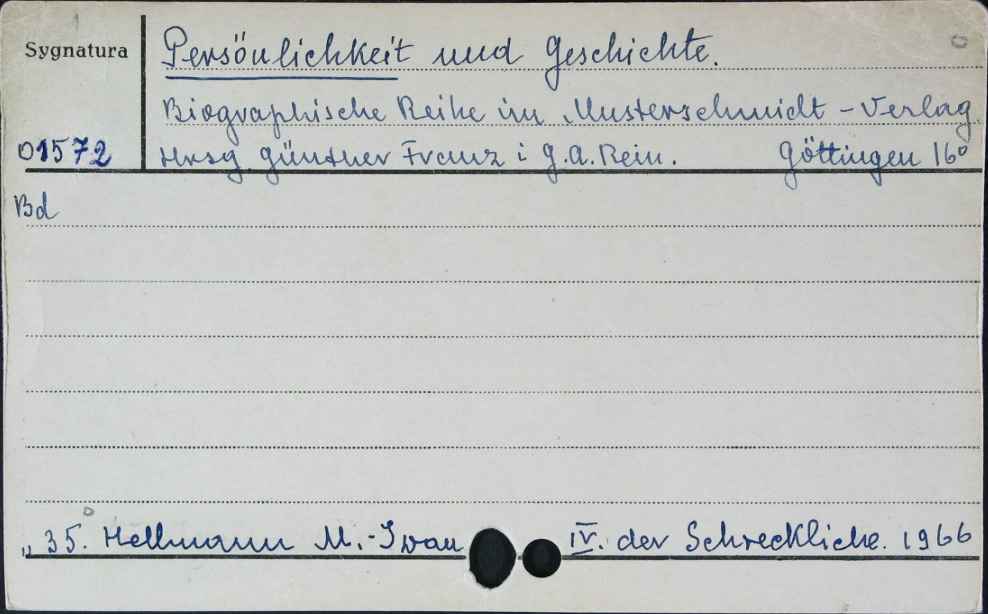 Sygnatura
Persönlichkeit und Geschichte.
Biographische Reihe im Musterschmidt - Verlag.
01572 Hrsg. Günther Franz i G.A. Rein. Göttingen 16°
Bd
„ 35. Hellmann M.-Iwan IV. der Schreckliche. 1966